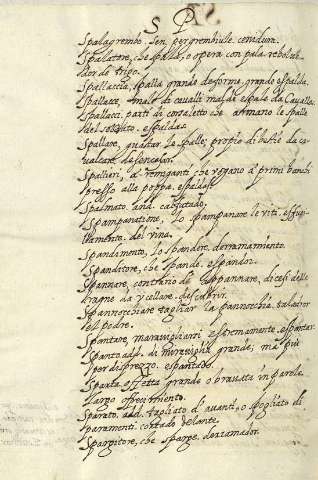 S P
Spalagrembo. Sen pergrembiule. cenidura.
Spalatore, che spala, o opera con pala. rebolea-
dor de trigo.
Spallaccia, spalla grande deforme, grande espalda.
Spallacce, male di cavalli. mal de espale da Cavallo.
Spallacci, parti di corsaletto che armano le spalle
del soldato. espaldas.
Spallare, guastar le spalle; proprio di bestie da ca-
ualcare. desencasar.
Spallieri, i remiganti che vogano a' primi banchi
presso alla poppa. espalder.
Spalmato. and. calafatado.
Spampanatione, lo spampanare le viti.
llamento. del vina.
Spandimento, lo spandere. derramamiento.
Spanditore, che spande. espandor.
Spannare, contrario de' appannare, dicesi delle
ragne da vcellare. descubrir.
Spannocchiare tagliar la pannocchia.
el pedre.
Spantare, maravigliarsi estremamente. espantar.
Spanto add. di maraviglia grande; ma più
per disprezzo. espantado.
Sparata offerta grande o bravata in parole.
largo offrecimiento.
Sparato, add. tagliato d'avanti, o spogliato di
paramenti. cortado delante.
Spargitore, che sparge. derramador.